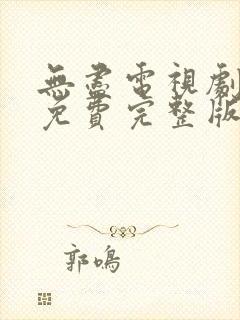 無盡電視劇
免費完整版
郭鳴